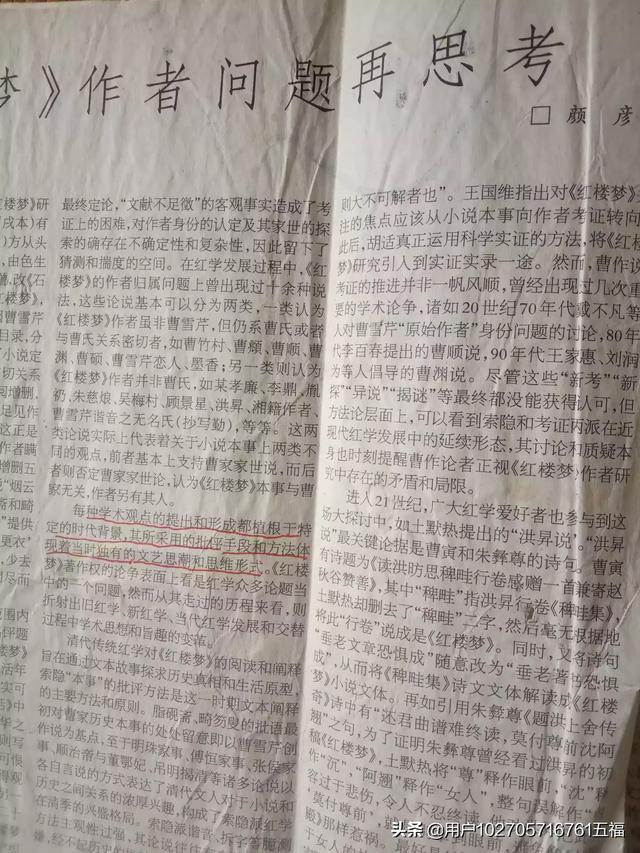 》作者问题再思考
□颜 彦
红楼梦》研
戌本）有
）方从头
，由色生
最终定论，“文献不足徵”的客观事实造成了考
证上的困难，对作者身份的认定及其家世的探
索的确存在不确定性和复杂性，因此留下了
猜测和揣度的空间。在红学发展过程中，《红
楼梦》的作者归属问题上曾出现过十余种说
法，这些论说基本可以分为两类，一类认为
《红楼梦》作者虽非曹雪芹，但仍系曹氏或者
与曹氏关系密切者，如曹竹村、曹頫、曹顺、曹
渊、曹硕、曹雪芹恋人、墨香；另一类则认为
《红楼梦》作者并非曹氏，如某孝廉、李鼎，胤
礽、朱慈烺、吴梅村、顾景星、洪昇、湘籍作者、
曹雪芹谐音之无名氏（抄写勤），等等。这两
类论说实际上代表着关于小说本事上两类不
同的观点，前者基本上支持曹家家世说，而后
者则否定曹家家世论，认为《红楼梦》本事与曹
家无关，作者另有其人。
每种学术观点的提出和形成都植根于特
定的时代背景，其所采用的批评手段和方法体
现着当时独有的文艺思潮和思维形式。《红楼
梦》著作权的论争表面上看是红学众多论题当
中的一个问题，然而从其走过的历程来看，则
折射出旧红学、新红学、当代红学发展和交替
过程中学术思想和旨趣的变革。
清代传统红学对《红楼梦》的阅读和阐释
旨在通过文本故事探求历史真相和生活原型，
索隐“本事”的批评方法是这一时期文本阐释
的主要方法和原则。脂砚斋、畸笏叟的批语最
初对曹家历史本事的处处留意即以曹雪芹创
作说为基点，至于明珠家事、傅恒家事、张侯家
事、顺治帝与董鄂妃、吊明揭清等诸多论说以
各自言说的方式表达了清代文人对于小说和
历史之间关系的浓厚兴趣，构成了索隐派红学
在清季的兴盛格局。索隐派红学
方法主观性过强，其论说往往
则大不可解者也”。王国维指出对《红楼梦》
注的焦点应该从小说本事向作者考证转向
此后，胡适真正运用科学实证的方法，将《红
梦》研究引入到实证实录一途。然而，曹作说
考证的推进并非一帆风顺，曾经出现过几次重
要的学术论争，诸如20世纪70年代或不凡等
人对曹雪芹“原始作者”身份问题的讨论，80年
代李百春提出的曹顺说，90年代王家惠、刘润
为等人倡导的曹渊说。尽管这些“新考”“新
探”“异说”“揭谜”等最终都没能获得认可，但
方法论层面上，可以看到索隐和考证两派在近
现代红学发展中的延续形态，其讨论和质疑本
身也时刻提醒曹作论者正视《红楼梦》作者研
究中存在的矛盾和局限。
进入21世纪，广大红学爱好者也参与到这
场大探讨中，如土默热提出的“洪昇说”。“洪昇
说”最关键论据是曹寅和朱彝尊的诗句。曹寅
有诗题为《读洪昉思稗畦行卷感赠一首兼寄赵
秋谷赞善》，其中“稗畦”指洪昇行卷《稗畦集》，
土默热却删去了“稗畦”二字，然后毫无根据地
将此“行卷”说成是《红楼梦》。同时，又将诗句
“垂老文章恐惧成”随意改为“垂老著书恐惧
成”，从而将《稗畦集》诗文文体解读成《红楼
梦》小说文体。再如引用朱彝尊《题洪上舍传
奇》诗中有“还君曲谱难终读，莫付尊前沈阿
翘”之句，为了证明朱彝尊曾经看过洪昇的初
稿《红楼梦》，土默热将“尊”释作眼前，“沈”释
作“沉”，“阿翘”释作“女人”，整句误解作“内
容过于悲伤，令人不忍终读，
头条 @用户102705716761五福